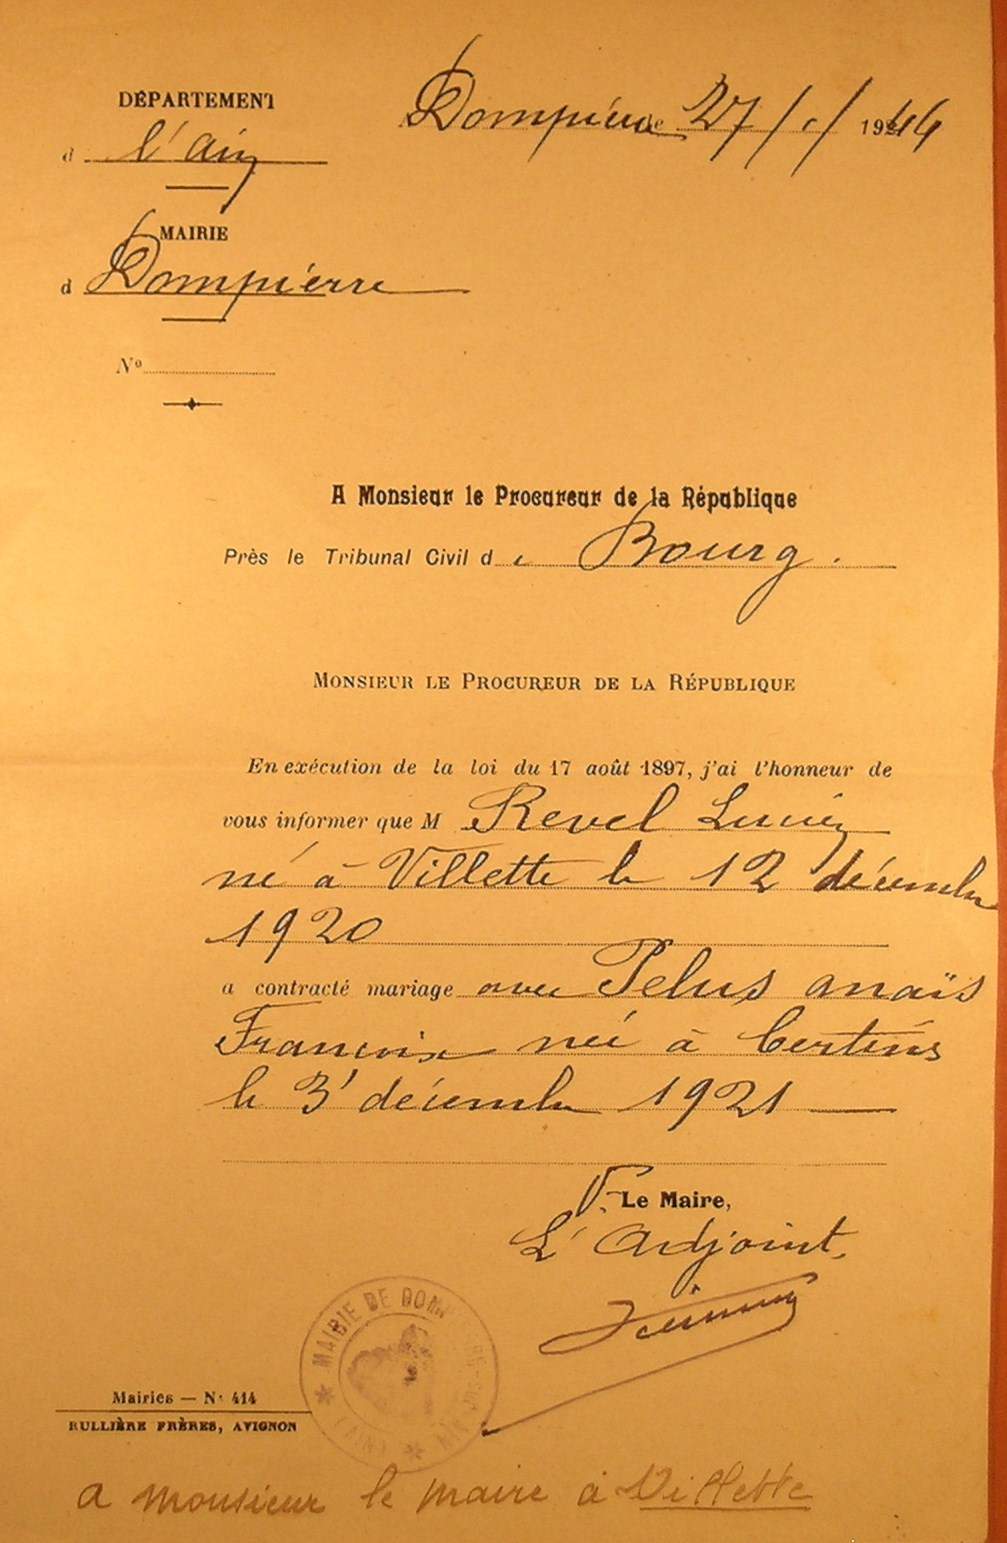 DÉPARTEMENT
d l'ain
Dompierre le 27/1/1944
MAIRIE
d Dompierre
N°
A Monsieur le Procureur de la République
Près le Tribunal Civil de Bourg.
MONSIEUR LE PROCUREUR DE LA RÉPUBLIQUE
En exécution de la loi du 17 août 1897, j'ai l'honneur de
vous informer que M Revel Lucien
né à Villette le 12 décembre
1920
a contracté mariage avec Pelus anaïs
Françoise née à Certines
le 3 décembre 1921
P. Le Maire,
L'Adjoint,
MAIRIE DE DOMPIERRE-SUR-AIN
(AIN)
Mairies — N° 414
RULLIÈRE FRÈRES, AVIGNON
a monsieur le maire à Villette